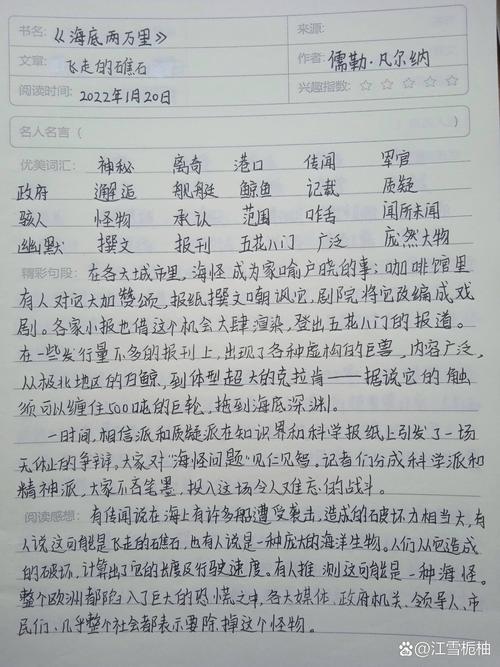 书名：《海底两万里》 来源：
文章：飞走的礁石 作者：儒勒·凡尔纳
阅读时间：2022年1月20日 兴趣指数：☆ ☆ ☆ ☆ ☆
名人名言（ ）
优美词汇： 神秘 离奇 港口 传闻 军官
政府 邂逅 舰艇 鲸鱼 记载 质疑
骇人 怪物 承认 范围 咋舌 闻所未闻
幽默 撰文 报刊 五花八门 广泛 庞然大物
精彩句段： 在各大城市里，海怪成为家喻户晓的事：咖啡馆里
有人对它大加赞颂，报纸撰文嘲讽它，剧院将它改编成戏
剧。各家小报也借这个机会大肆渲染，登出五花八门的报道。
在一些发行量不多的报刊上，出现了各种虚构的巨兽，内容广泛，
从极北地区的白鲸，到体型超大的克拉肯——据说它的触
须可以缠住500吨的巨轮，拖到海底深渊。
一时间，相信派和质疑派在知识界和科学报纸上引发了一场
无休止的争辩，大家对“海怪问题”见仁见智。记者们分成科学派和
精神派，大家不吝笔墨，投入这场令人难忘的战斗。
阅读感想： 有传闻说在海上有许多船遭受袭击，造成的破坏力相当大，有
人说这可能是飞走的礁石，也有人说是一种庞大的海洋生物。人们从它造成
的破坏，计算出了它的长度及行驶速度。有人推测这可能是一种海怪。
整个欧洲都陷入了巨大的恐慌之中，各大媒体、政府机关、领导人、市
民们，几乎整个社会都表示要除掉这个怪物。
@江雪栀柚